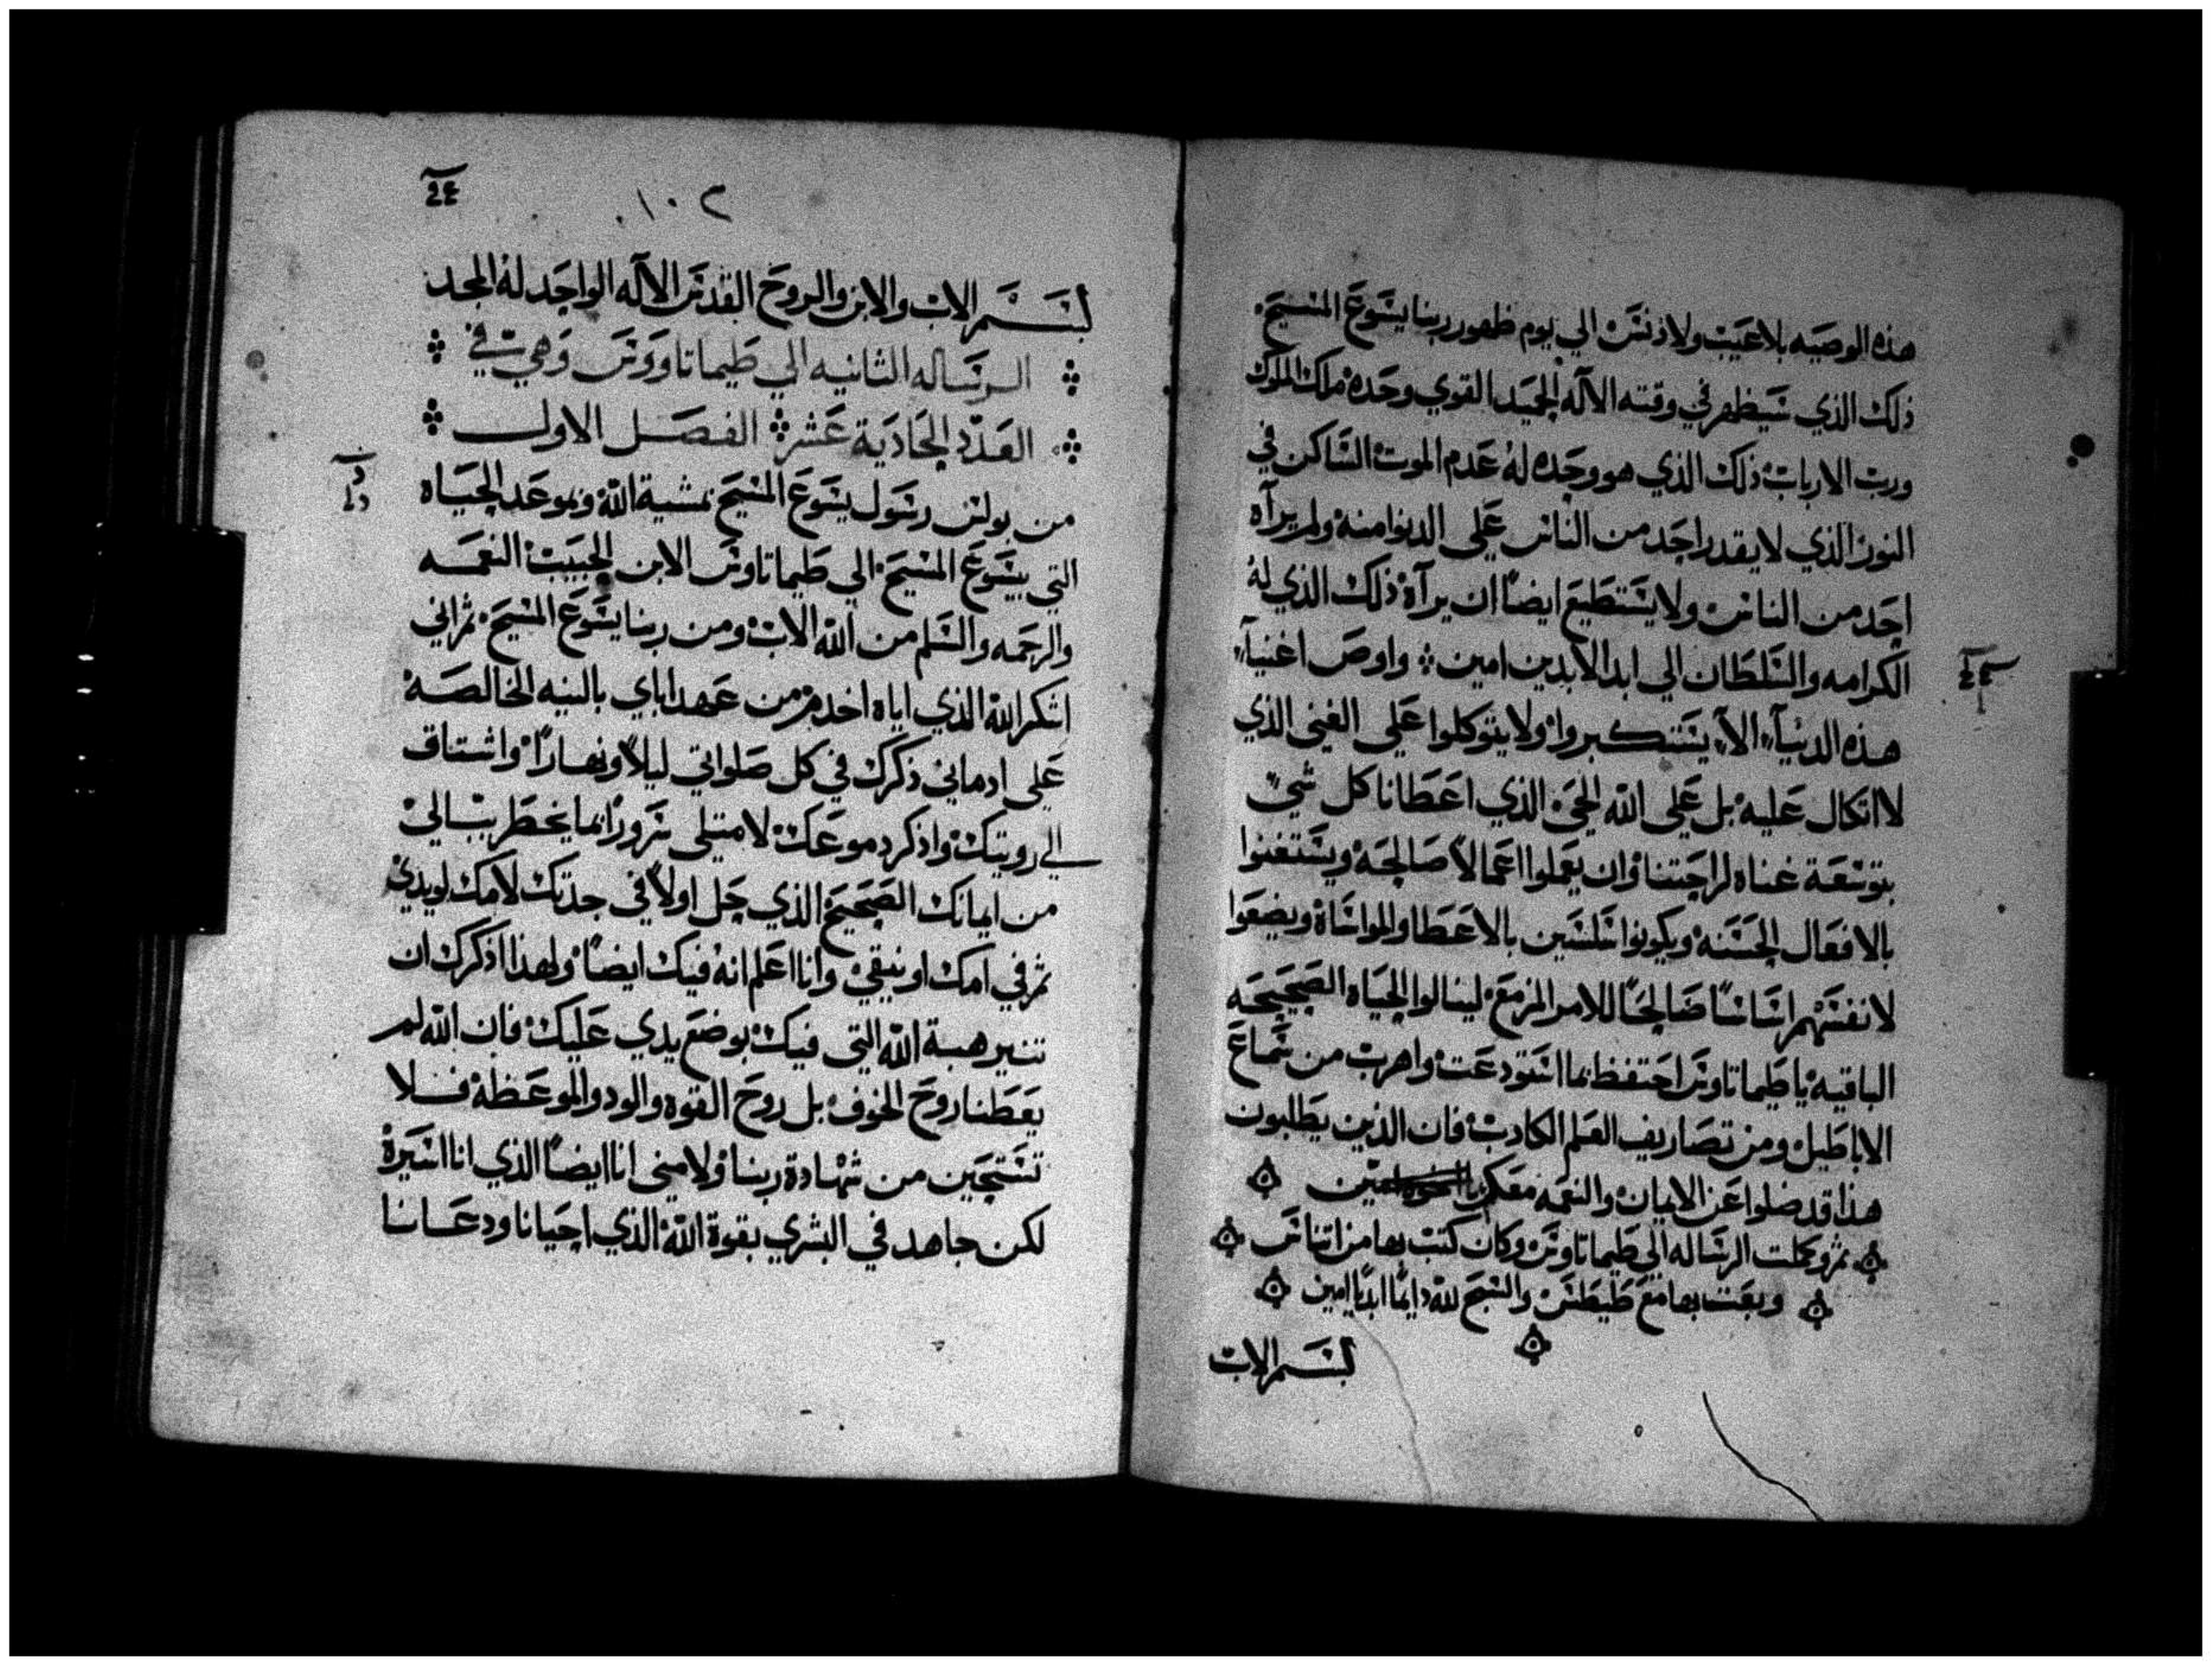 هذه الوصيه بلا عيب ولا دنس الي يوم ظهور ربنا يسوع المسيح
ذلك الذي سيظهر في وقته الاله الحميد القوي وحده ملك الملوك
ورب الارباب ذلك الذي هو وحده له عدم الموت الساكن في
النور الذي لا يقدر احد من الناس علي الدنوا منه ولم يرآه
احد من الناس ولا يستطيع ايضًا ان يرآه ذلك الذي له
الكرامه والسلطان الي ابد الابدين امين واوص اغنيآء
هذه الدنيآء الاّ يستكبروا ولا يتوكلوا علي الغني الذي
لا اتكال عليه بل علي الله الحي الذي اعطانا كل شيء
بتوسعة غناه لراحتنا وان يعملوا اعمالاً صالحة ويستغنوا
بالافعال الحسنه ويكونوا سلسين بالاعطا والمواساة ويضعوا
لانفسهم اساسًا صالحًا للامر المزمع لينالوا الحياه الصحيحه
الباقيه يا طيماتاوس احتفظ بما استودعت واهرب من سماع
الاباطيل ومن تصاريف العلم الكادب فان الذين يطلبون
هذا قد ضلوا عن الايمان والنعمه معكن امين
ثم وكملت الرساله الي طيماتاوس وكان كتب بها من اتناس
وبعت بها مع طيطس والسبح لله دايمًا ابديًا امين
بسم الاب
٢٠١
بسم الاب والابن والروح القدس الاله الواحد له المجد
الرساله الثانيه الي طيماتاووس وهي في
العدد الحادية عشر الفصل الاول
من بولس رسول يسوع المسيح بمشية الله وبموعد الحياه
التي بيسوع المسيح الي طيماتاوس الابن الحبيب النعمه
والرحمه والسلم من الله الاب ومن ربنا يسوع المسيح ثم اني
اشكر الله الذي اياه اخدم من عهد اباي بالنيه الخالصه
علي ادماني ذكرك في كل صلواتي ليلاً ونهارًا واشتاق
الي رويتك واذكر دموعك لامتلي سرورًا بما يخطر ببالي
من ايمانك الصحيح الذي حل اولاً في جدتك لامك لويدي
ثم في امك اونيقي وانا اعلم انه فيك ايضًا ولهذا اذكرك ان
تنير هبة الله التي فيك بوضع يدي عليك فان الله لم
يعطنا روح الخوف بل روح القوه والود والموعظه فلا
تستحين من شهادة ربنا ولا مني انا ايضًا الذي انا اسيره
لكن جاهد في البشري بقوة الله الذي احيانا ودعانا